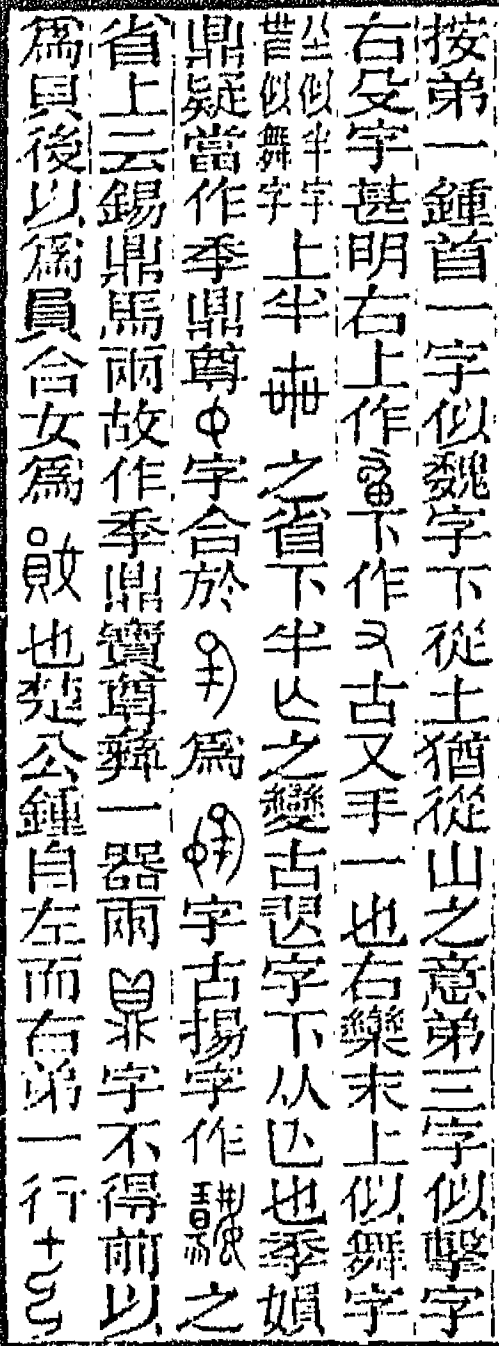 按弟一鍾首一字似魏字下從土猶從山之意弟三字似擊字
右殳字甚明右上作下作又古又手一也右欒末上似舞字
坐似半字昔似舞字上半之省下半亾之變古字下从亾也季娟
鼎疑當作季鼎尊字合於為字古揚字作之
省上云錫鼎馬兩故作季鼎寶尊彝一器兩字不得前以
為貝後以為員合女為也楚公鍾自左而右弟一行